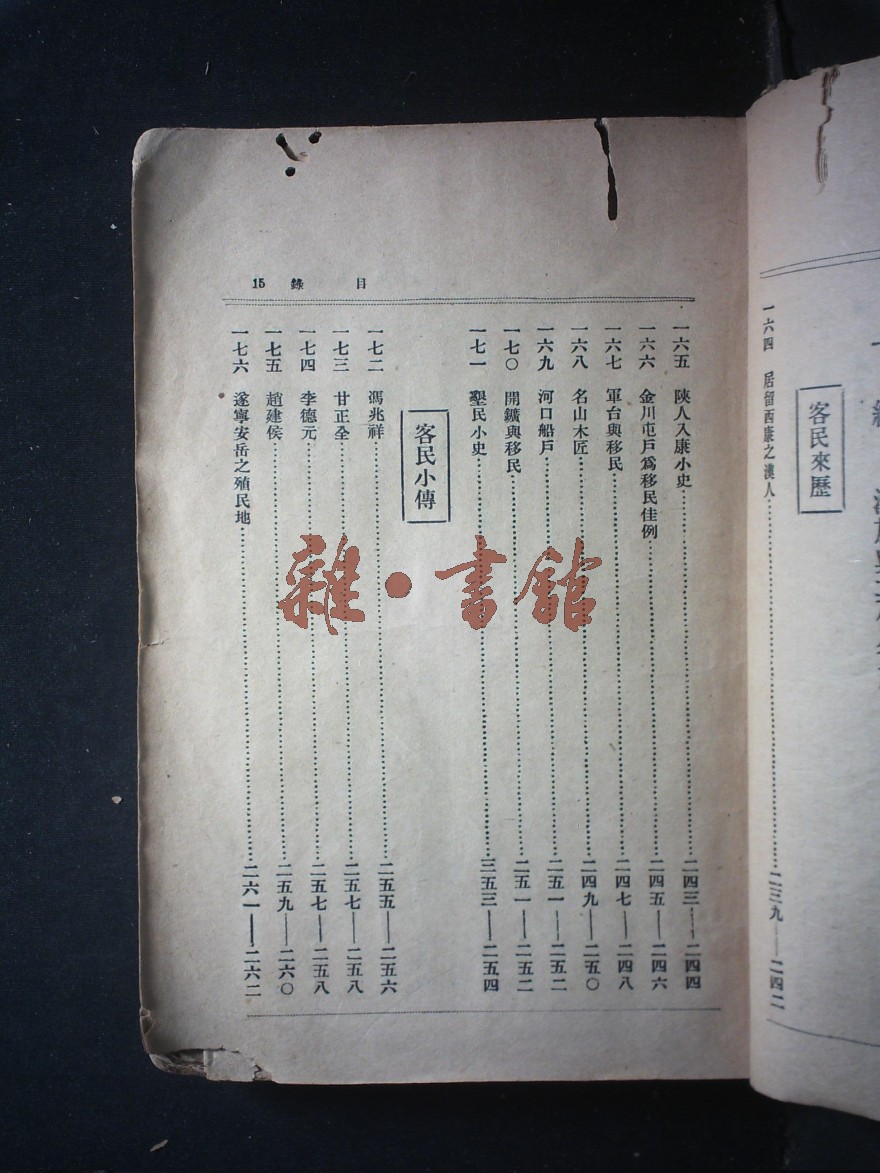 客民來歷
一六四 居留西康之漢人……二三九——二四二
目錄 15
一六五 陝人入康小史……二四三——二四四
一六六 金川屯戶爲移民佳例……二四五——二四六
一六七 軍台與移民……二四七——二四八
一六八 名山木匠……二四九——二五〇
一六九 河口船戶……二五一——二五二
一七〇 開鑛與移民……二五一——二五二
一七一 墾民小史……三五三——二五四
客民小傳
一七二 馮兆祥……二五五——二五六
一七三 甘正全……二五七——二五八
一七四 李德元……二五七——二五八
一七五 趙建侯……二五九——二六〇
一七六 遂寧安岳之殖民地……二六一——二六二
雜·書館